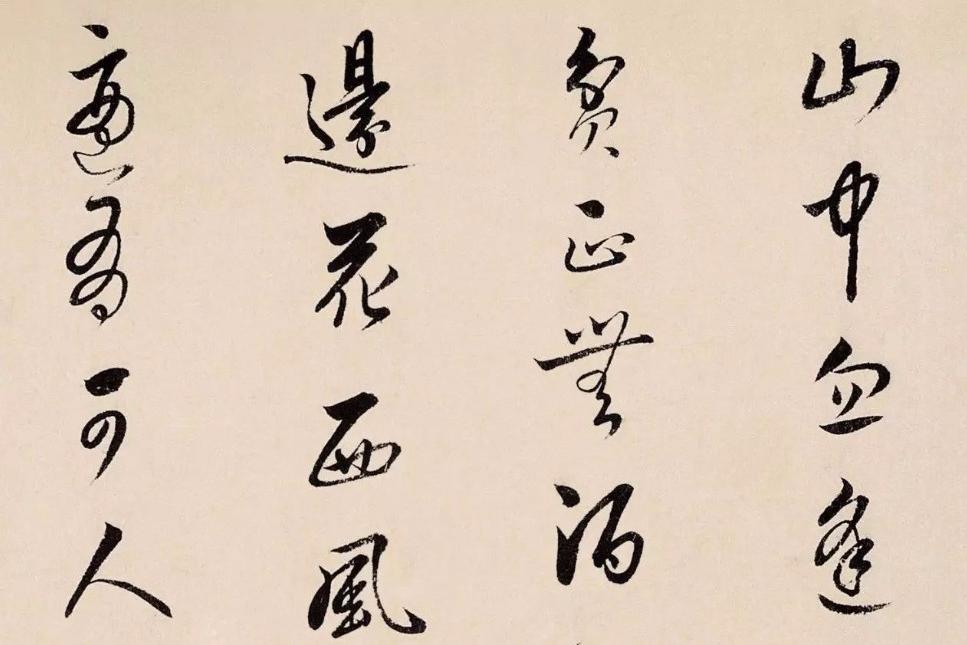 山中忽逢
貧正無酒
邊花西風
適可人